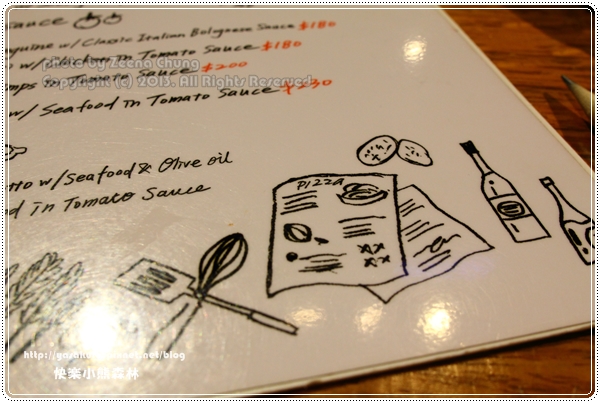 Sauce
w/ Classic Italian Bolognese Sauce $180
w/ in Tomato Sauce $180
in Tomato Sauce $200
w/ Seafood in Tomato Sauce $230
Photo by Zeena Chung
Copyright (c) 2013. All Rights Reserved.
w/ Seafood & Olive oil
in Tomato Sauce
PIZZA
快樂小熊森林